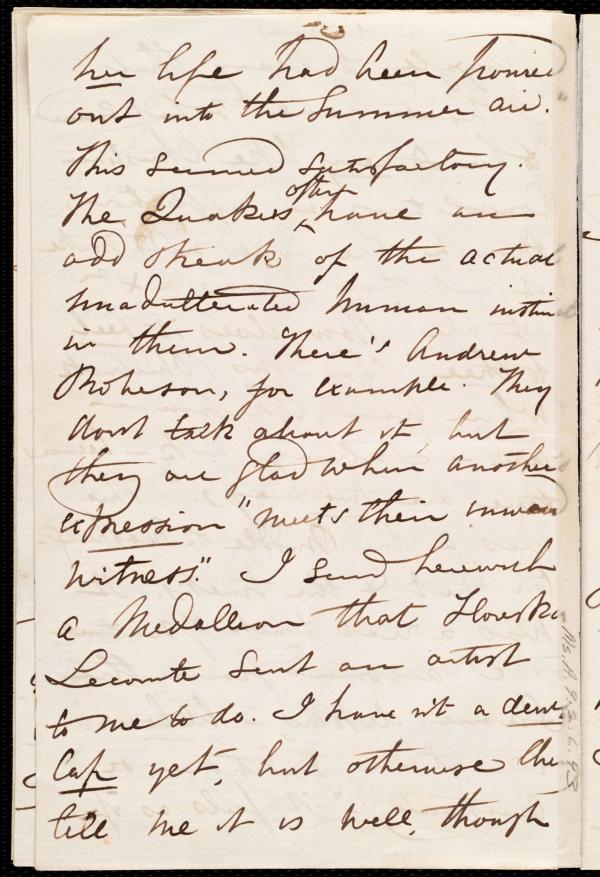 her life had been poured
out into the Summer air.
This seemed satisfactory.
The Quakers often have an
odd streak of the actual
unadulterated human instinct
in them. There's Andrew
Robeson, for example. They
don't talk about it, but
they are glad when another
expression "meets their inward
witness." I send herewith
a Medallion that
Lecomte sent an artist
to me to do. I have n't a dew
Cap yet, but otherwise they
tell me it is well, though
Ms.A.9.2.6.93